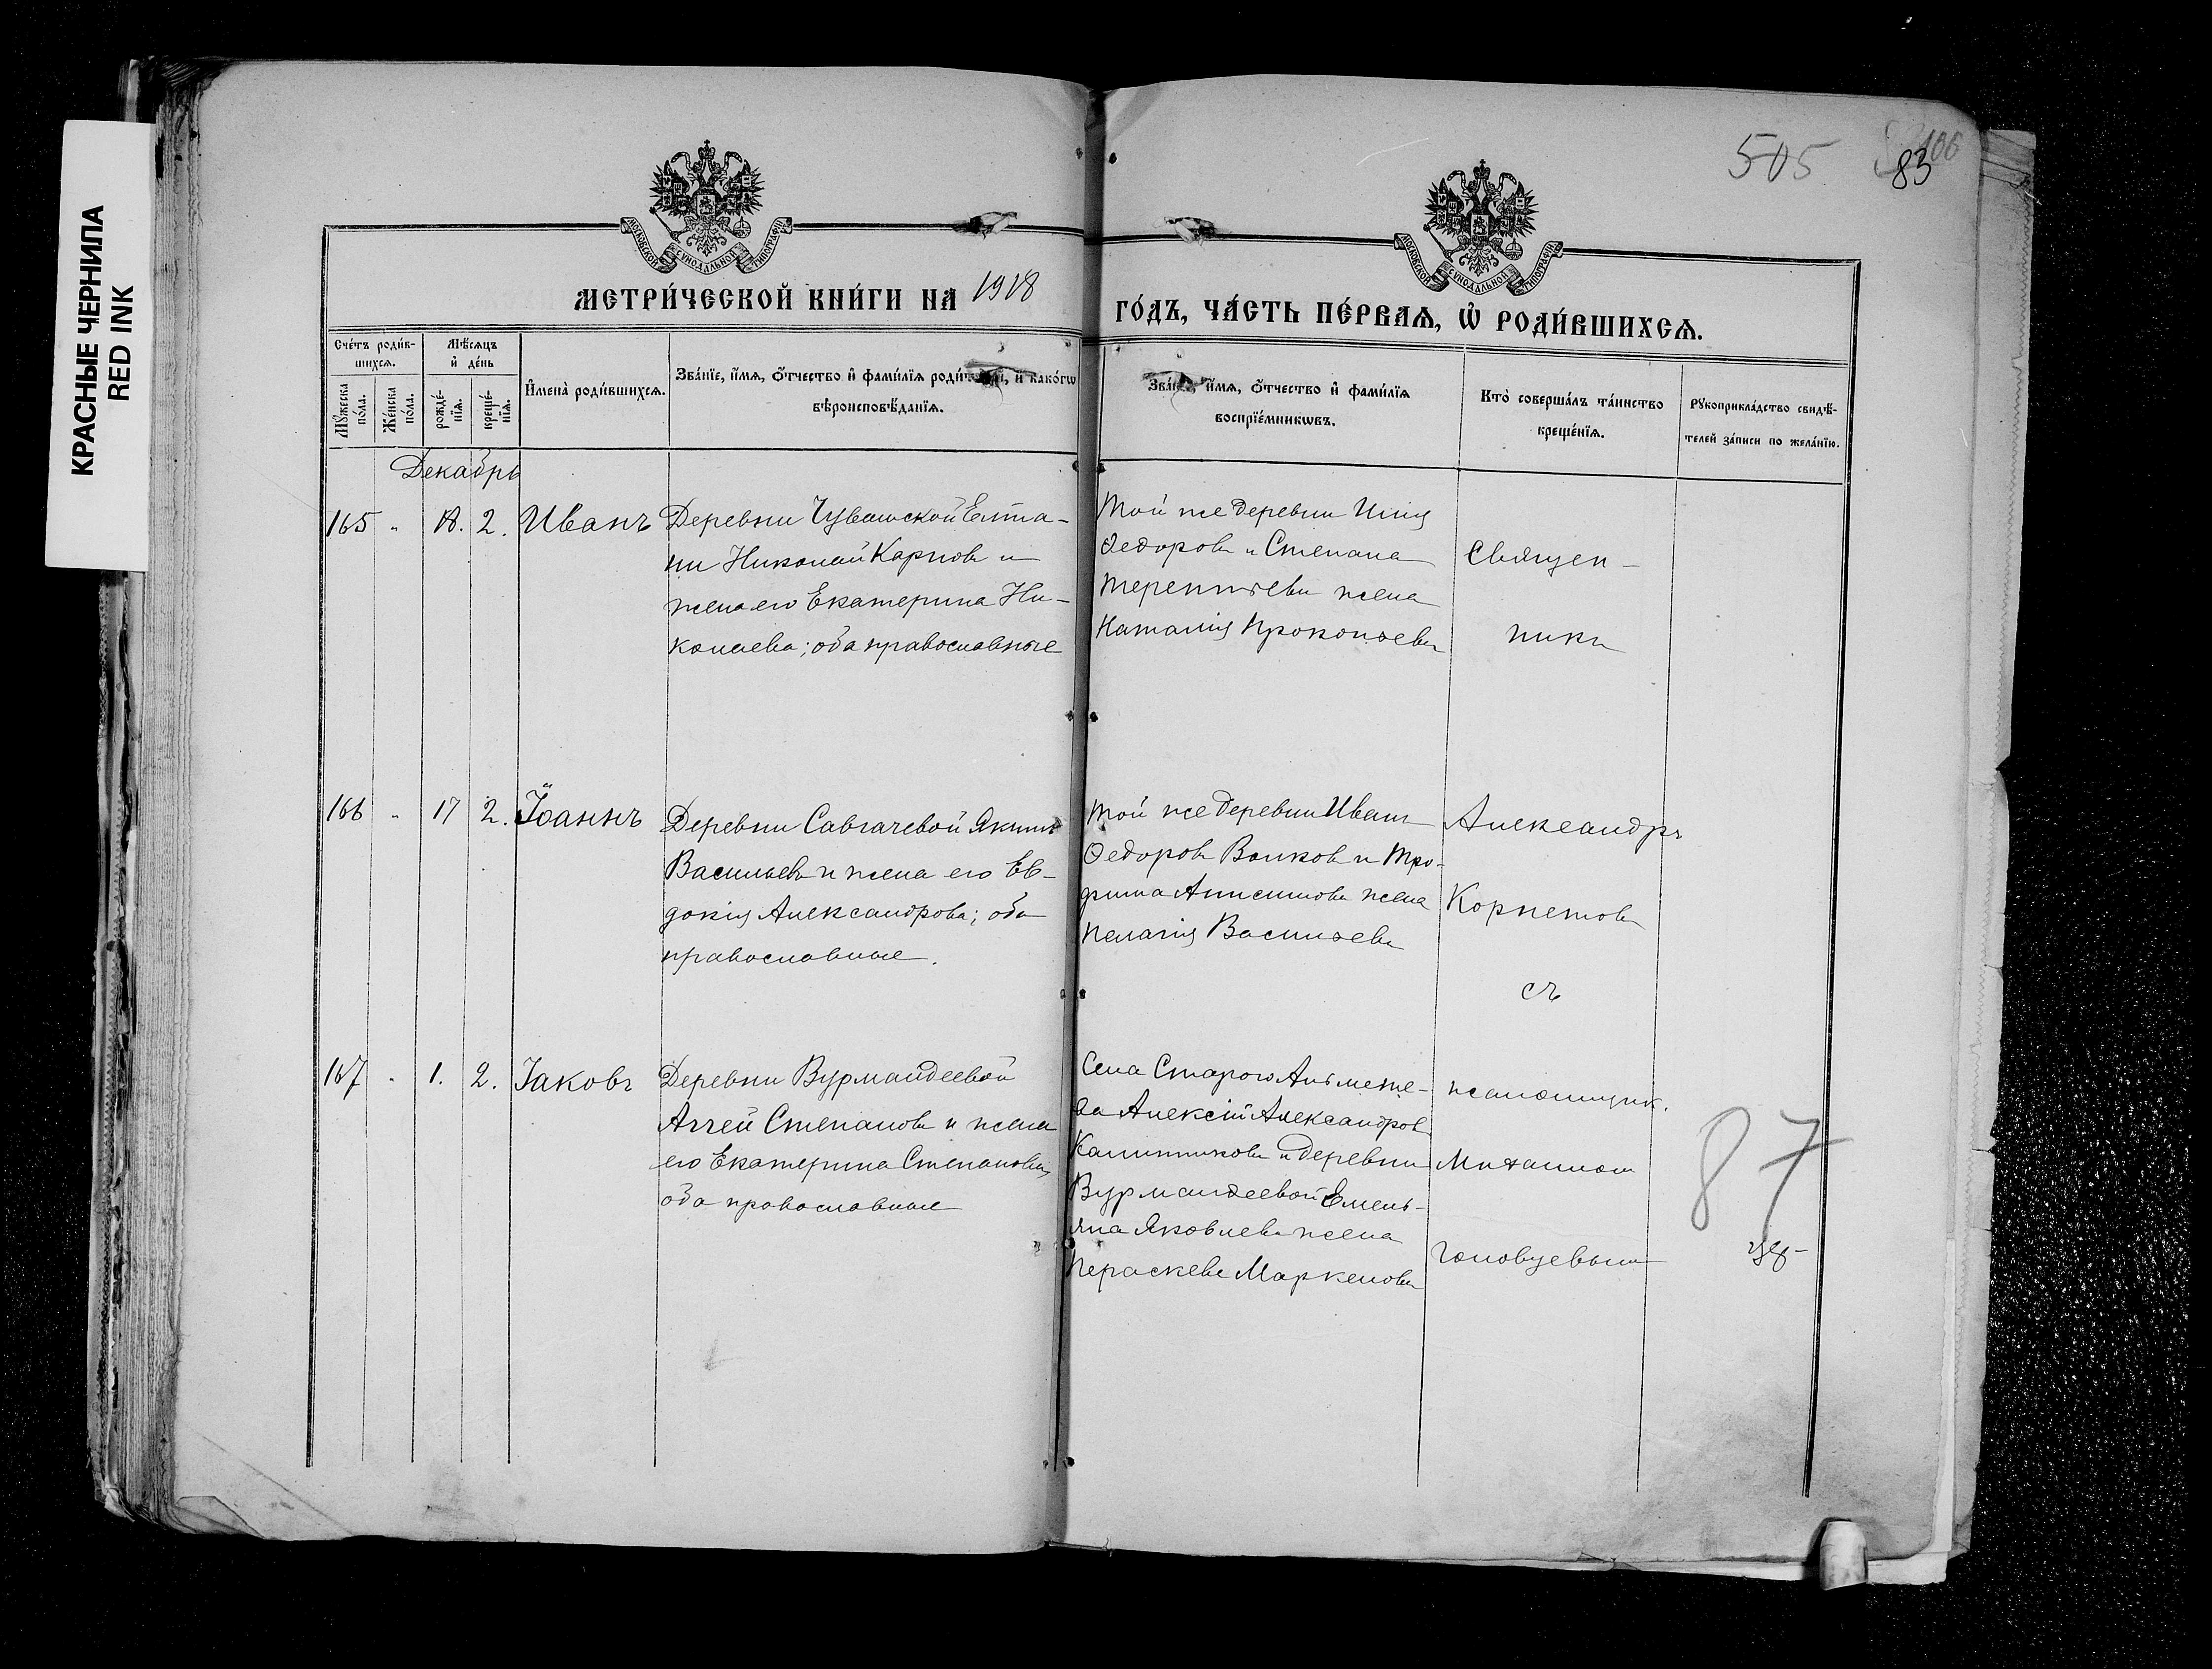 КРАСНЫЕ ЧЕРНИЛА
RED INK
505
83
106
МОСКОВСКОЙ СѴНОДАЛЬНОЙ ТИПОГРАФІИ
МОСКОВСКОЙ СѴНОДАЛЬНОЙ ТИПОГРАФІИ
МЕТРИ́ЧЕСКОЙ КНИ́ГИ НА 1918
ГО́ДЪ, ЧА́СТЬ ПЕ́РВАЯ, Ѿ РОДИ́ВШИХСЯ.
Сче́тъ роди́в-
шихся.
Мꙋ́жеска по́ла.
Же́нска по́ла.
Мѣ́сяцъ
и҆ де́нь
рожде́-
нїѧ.
креще́-
нїѧ.
И҆мена̀ роди́вшихся.
Зва́нїе, и҆́мѧ, ѻ҆́тчество и҆ фами́лїѧ роди́телей, и҆ како́гѡ
вѣроисповѣ́данїѧ.
Зва́нїе, и҆́мѧ, ѻ҆́тчество и҆ фами́лїѧ
воспрїе́мникѡвъ.
Кто̀ соверша́лъ та́инство
креще́нїѧ.
Рꙋкоприкла́дство свидѣ́-
телей за́писи по жела́нїю.
Декабрь
165 " 2. Иванъ
Деревни Чувашской Елта-
ни Николай Карповъ и
жена его Екатерина Ни-
колаева; оба православные
Той же деревни Илія
Ѳедоровъ и Степана
Терентьева жена
Наталия Прокопьева
166 " 17 2. Іоаннъ
Деревни Савгачевой Якимъ
Васильевъ и жена его Ев-
докія Александрова; оба
православные.
Той же деревни Иванъ
Ѳедоровъ Волковъ и Тро-
фима Анисимова жена
Пелагія Васильева
167 " 1. 2. Іаковъ
Деревни Вурмандеевой
Аггей Степановъ и жена
его Екатерина Степанова;
оба православные
Села Стараго Альмете-
ва Алексій Александровъ
Калитниковъ и деревни
Вурмандеевой Емель-
яна Яковлева жена
Пераскева Маркелова
Священ-
никъ
Александръ
Корнетовъ
съ
псаломщик.
Михаиломъ
Головцевымъ
87